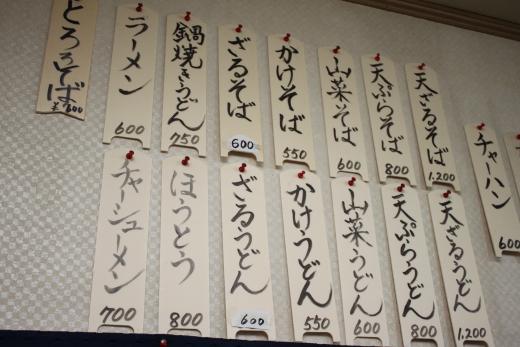 とろろそば
¥600
ラーメン
600
鍋焼きうどん
750
ざるそば
600
かけそば
550
山菜そば
600
天ぷらそば
800
天ざるそば
1,200
チャーハン
600
チャーシューメン
700
ほうとう
800
ざるうどん
600
かけうどん
550
山菜うどん
600
天ぷらうどん
800
天ざるうどん
1,200